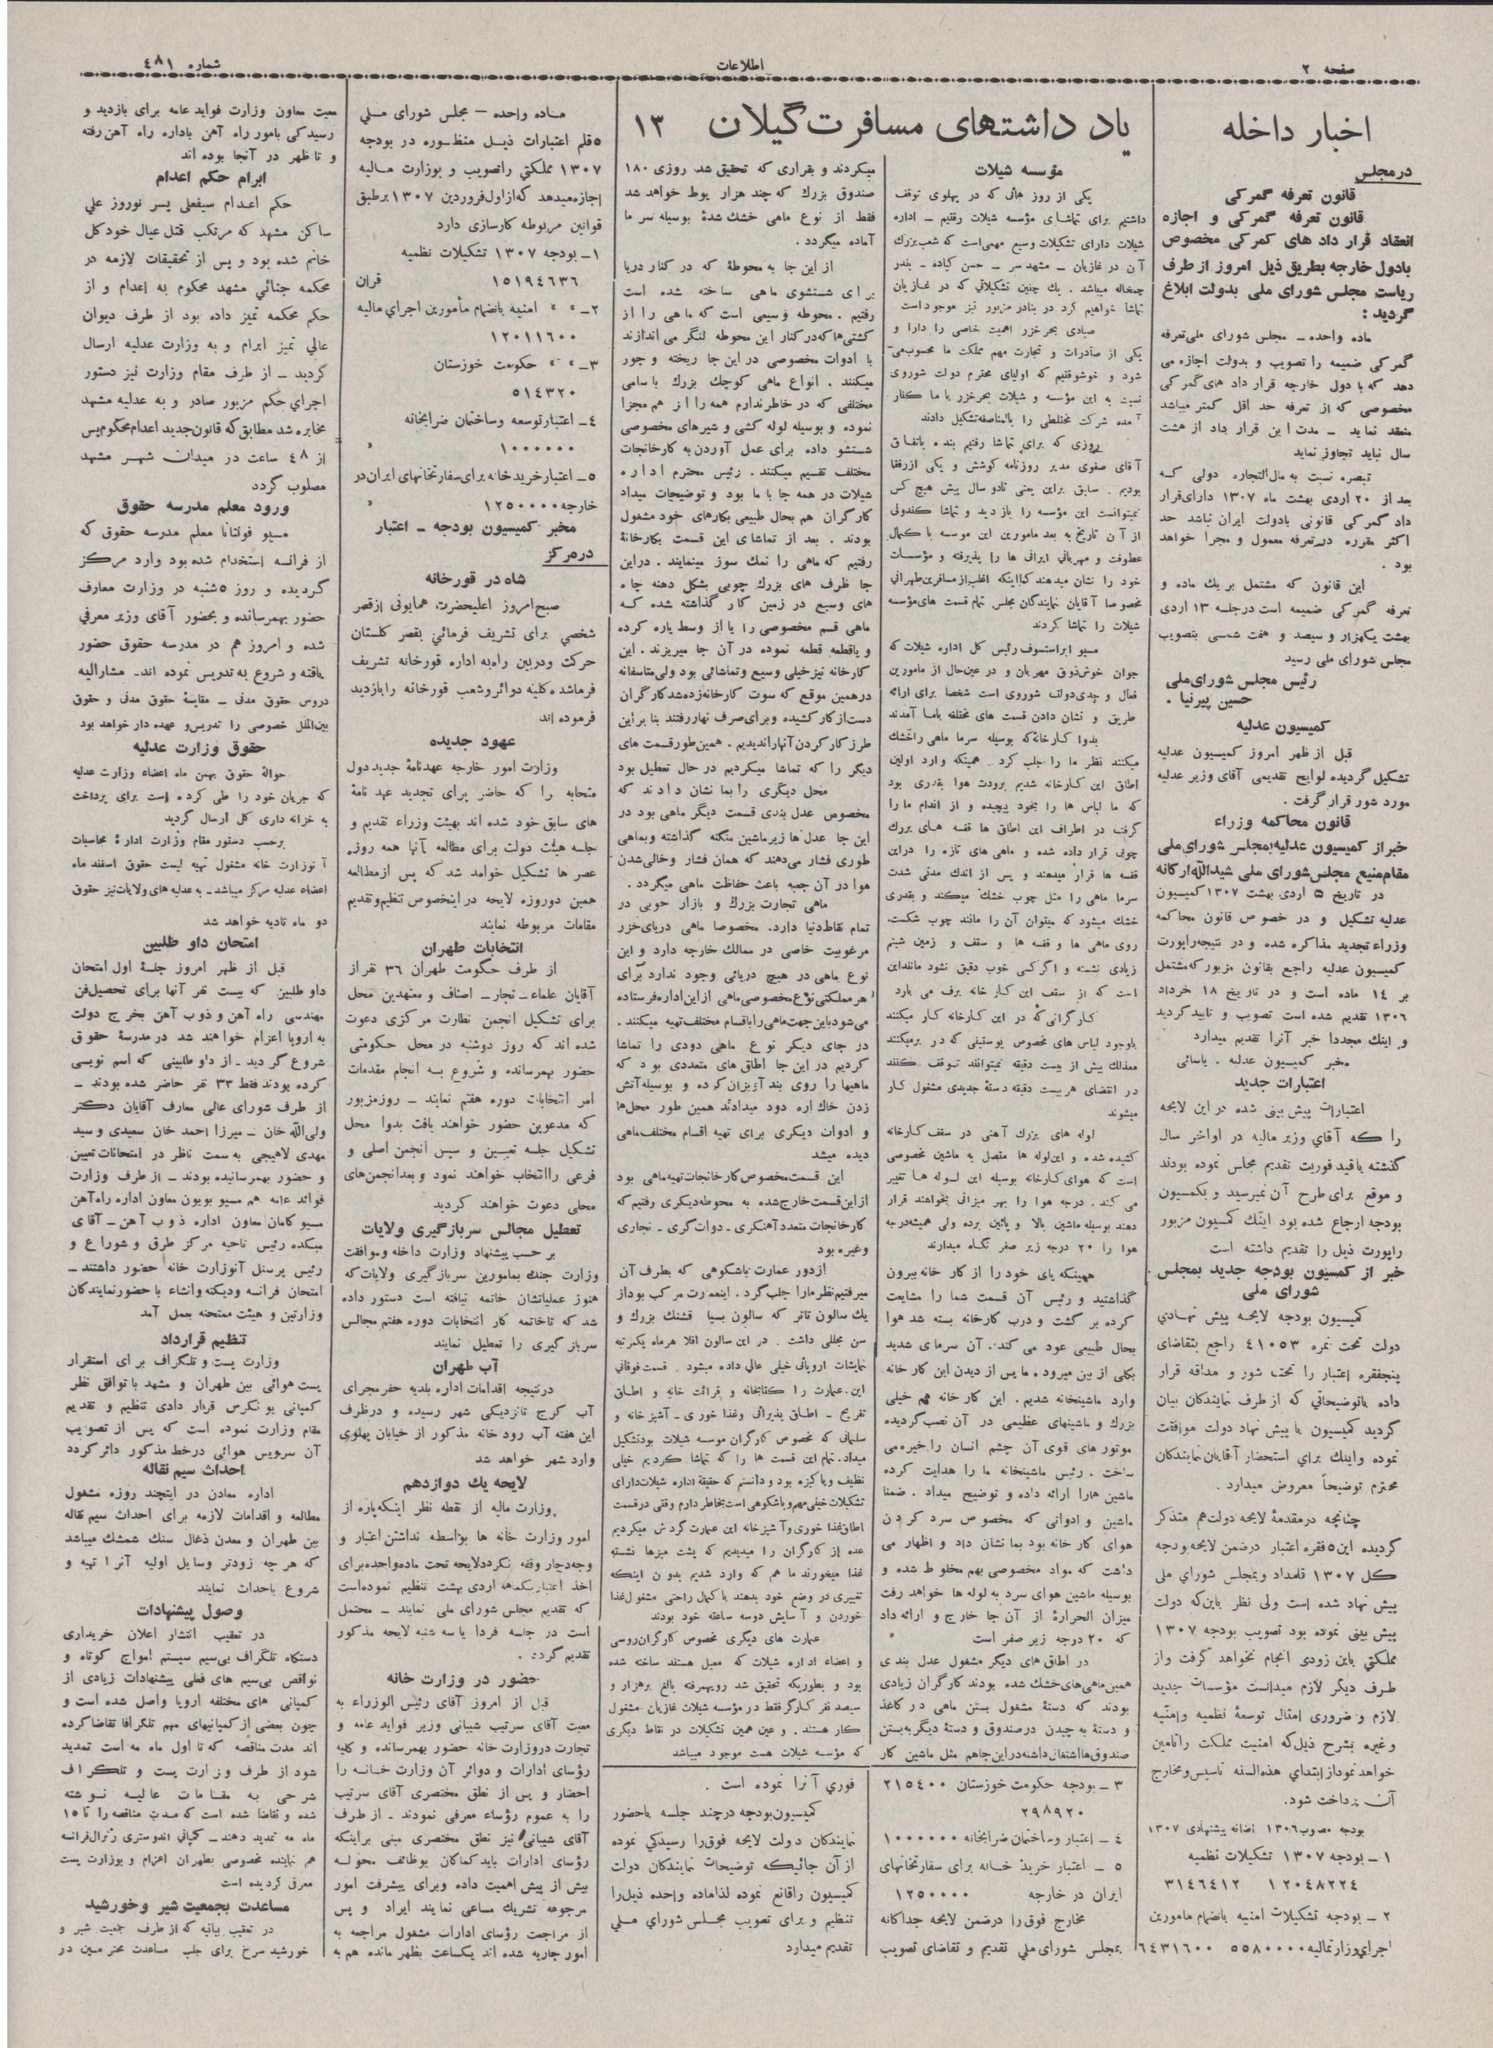 صفحه ۲
اطلاعات
شماره ۴۸۱
اخبار داخله
در مجلس
قانون تعرفه گمرکی
قانون تعرفه گمرکی و اجازه
انعقاد قرار داد های گمرکی مخصوص
بادول خارجه بطریق ذیل امروز از طرف
ریاست مجلس شورای ملی بدولت ابلاغ
گردید :
ماده واحده ـ مجلس شورای ملی تعرفه
گمرکی ضمیمه را تصویب و بدولت اجازه می
دهد که با دول خارجه قرار داد های گمرکی
مخصوصی که از تعرفه حد اقل کمتر میباشد
منعقد نماید ـ مدت این قرار داد از هشت
سال نباید تجاوز نماید
تبصره نسبت به مال التجاره دولی که
بعد از ۲۰ اردی بهشت ماه ۱۳۰۷ دارای قرار
داد گمرکی قانونی بادولت ایران نباشد حد
اکثر مقرره در تعرفه معمول و مجرا خواهد
بود .
این قانون که مشتمل بر یك ماده و
تعرفه گمرکی ضمیمه است در جلسه ۱۳ اردی
بهشت یکهزار و سیصد و هفت شمسی بتصویب
مجلس شورای ملی رسید
رئیس مجلس شورای ملی
حسین پیرنیا .
کمیسیون عدلیه
قبل از ظهر امروز کمیسیون عدلیه
تشکیل گردیده لوایح تقدیمی آقای وزیر عدلیه
مورد شور قرار گرفت .
قانون محاکمه وزراء
خبر از کمیسیون عدلیه بمجلس شورای ملی
مقام منیع مجلس شورای ملی شیدالله ارکانه
در تاریخ ۵ اردی بهشت ۱۳۰۷ کمیسیون
عدلیه تشکیل و در خصوص قانون محاکمه
وزراء تجدید مذاکره شده و در نتیجه راپورت
کمیسیون عدلیه راجع بقانون مزبور که مشتمل
بر ۱۴ ماده است و در تاریخ ۱۸ خرداد
۱۳۰۶ تقدیم شده است تصویب و تایید گردید
و اینك مجددا خبر آنرا تقدیم میدارد
مخبر کمیسیون عدلیه . یاسائی
اعتبارات جدید
اعتبارات پیش بینی شده در این لایحه
را که آقای وزیر مالیه در اواخر سال
گذشته باقید فوریت تقدیم مجلس نموده بودند
و موقع برای طرح آن نمیرسید و بکمسیون
بودجه ارجاع شده بود اینك کمسیون مزبور
راپورت ذیل را تقدیم داشته است
خبر از کمسیون بودجه جدید بمجلس
شورای ملی
کمیسیون بودجه لایحه پیش نهادی
دولت تحت نمره ۴۱۰۵۳ راجع بتقاضای
پنجفقره اعتبار را تحت شور و مداقه قرار
داده باتوضیحاتی که از طرف نمایندگان بیان
گردید کمیسیون با پیش نهاد دولت موافقت
نموده واینك برای استحضار آقایان نمایندگان
محترم توضیحاً معروض میدارد .
چنانچه در مقدمهٔ لایحه دولت هم متذکر
گردیده این ۵ فقره اعتبار در ضمن لایحه بودجه
کل ۱۳۰۷ قلمداد و بمجلس شورای ملی
پیش نهاد شده است ولی نظر باین که دولت
پیش بینی نموده بود تصویب بودجه ۱۳۰۷
مملکتی باین زودی انجام نخواهد گرفت و از
طرف دیگر لازم میدانست مؤسسات جدید
لازم و ضروری امثال توسعهٔ نظمیه و امنیه
و غیره بشرح ذیل که امنیت مملکت را تامین
خواهد نمود از ابتدای هذه السنه تاسیس و مخارج
آن پرداخت شود.
بودجه مصوب ۱۳۰۶ اضافه پیشنهادی ۱۳۰۷
۱ ـ بودجه ۱۳۰۷ تشکیلات نظمیه
۱۲۰۴۸۲۲۴ ۳۱۴۶۴۱۲
۲ ـ بودجه تشکیلات امنیه بانضمام مامورین
اجرای وزار تمالیه ۵۵۸۰۰۰۰ ۶۴۳۱۶۰۰
یاد داشتهای مسافرت گیلان ۱۳
مؤسسه شیلات
یکی از روز هائی که در پهلوی توقف
داشتیم برای تماشای مؤسسه شیلات رفتیم ـ اداره
شیلات دارای تشکیلات وسیع مهمی است که شعب بزرك
آن در غازیان ـ مشهد سر ـ حسن کیاده ـ بندر
چمخاله میباشد . یك چنین تشکیلاتی که در غازیان
تماشا خواهیم کرد در بنادر مزبور نیز موجود است
صیادی بحر خزر اهمیت خاصی را دارا و
یکی از صادرات و تجارت مهم مملکت ما محسوب می
شود و خوشوقتیم که اولیای محترم دولت شوروی
نسبت به این مؤسسه و شیلات بحر خزر با ما کنار
آمده شرکت مختلطی را بالمناصفه تشکیل دادند
روزی که برای تماشا رفتیم بنده باتفاق
آقای صفوی مدیر روزنامه کوشش و یکی از رفقا
بودیم . سابق براین یعنی تادو سال پیش هیچ کس
نمیتوانست این مؤسسه را بازدید و تماشا کندولی
از آن تاریخ به بعد مامورین این موسسه با کمال
عطوفت و مهربانی ایرانی ها را پذیرفته و مؤسسات
خود را نشان میدهند کما اینکه اغلب از مسافرین طهرانی
مخصوصا آقایان نمایندگان مجلس تمام قسمت های مؤسسه
شیلات را تماشا کردند
مسیو ابراستوف رئیس کل اداره شیلات که
جوان خوش ذوق مهربان و در عین حال از مامورین
فعال و جدی دولت شوروی است شخصا برای ارائه
طریق و نشان دادن قسمت های مختلفه با ما آمدند
بدوا کارخانه که بوسیله سرما ماهی را خشك
میکنند نظر ما را جلب کرد . همینکه وارد اولین
اطاق این کارخانه شدیم برودت هوا بقدری بود
که ما لباس ها را بخود پیچیده و از اندام ما را
گرفت در اطراف این اطاق ها قفسه های بزرك
چوبی قرار داده شده و ماهی های تازه را دراین
قفسه ها قرار میدهند و پس از اندك مدتی شدت
سرما ماهی را مثل چوب خشك میکند و بقدری
خشك میشود که میتوان آن را مانند چوب شکست.
روی ماهی ها و قفسه ها و سقف و زمین شبنم
زیادی نشسته و اگر کسی خوب دقیق نشود ماننداین
است که از سقف این کار خانه برف می بارد
کارگرانی که در این کارخانه کار میکنند
باوجود لباس های مخصوص پوستینی که در بر میکنند
معذلك بیش از بیست دقیقه نمیتوانند توقف کنند
در انقضای هر بیست دقیقه دستهٔ جدیدی مشغول کار
میشوند
لوله های بزرك آهنی در سقف کارخانه
کشیده شده و این لوله ها متصل به ماشین مخصوصی
است که هوای کارخانه بوسیله این لوله ها تغیر
می کند . درجه هوا را بهر میزانی بخواهند قرار
دهند بوسیله ماشین بالا و پائین برده ولی همیشه درجه
هوا را ۲۰ درجه زیر صفر نگاه میدارند
همینکه پای خود را از کار خانه بیرون
گذاشتید و رئیس آن قسمت شما را مشایعت
کرده بر گشت و درب کارخانه بسته شد هوا
بحال طبیعی عود می کند. آن سرمای شدید
بکلی از بین میرود . ما پس از دیدن این کار خانه
وارد ماشینخانه شدیم . این کار خانه هم خیلی
بزرك و ماشینهای عظیمی در آن نصب گردیده
موتور های قوی آن چشم انسان را خیره می
ساخت . رئیس ماشینخانه ما را هدایت کرده
ماشین هارا ارائه داده و توضیح میداد . ضمنا
ماشین و ادواتی که مخصوص سرد کردن
هوای کار خانه بود بما نشان داد و اظهار می
داشت که مواد مخصوصی بهم مخلوط شده و
بوسیله ماشین هوای سرد به لوله ها خواهد رفت
میزان الحرارهٔ از آن جا خارج و ارائه داد
که ۲۰ درجه زیر صفر است
در اطاق های دیگر مشغول عدل بندی
همین ماهی های خشك شده بودند کارگران زیادی
بودند که دستهٔ مشغول بستن ماهی در کاغذ
و دستهٔ به چیدن در صندوق و دستهٔ دیگر به بستن
صندوق ها اشتغال داشته در این جاهم مثل ماشین کار
میکردند و بقراری که تحقیق شد روزی ۱۸۰
صندوق بزرك که چند هزار پوط خواهد شد
فقط از نوع ماهی خشك شدهٔ بوسیله سر ما
آماده میگردد .
از این جا به محوطهٔ که در کنار دریا
برای شستشوی ماهی ساخته شده است
رفتیم . محوطه وسیعی است که ماهی را از
کشتی ها که در کنار این محوطه لنگر می اندازند
با ادوات مخصوصی در این جا ریخته و جور
میکنند . انواع ماهی کوچك بزرك با سامی
مختلفی که در خاطر ندارم همه را از هم مجزا
نموده و بوسیله لوله کشی و شیرهای مخصوصی
شستشو داده برای عمل آوردن به کارخانجات
مختلف تقسیم میکنند . رئیس محترم اداره
شیلات در همه جا با ما بود و توضیحات میداد
کارگران هم بحال طبیعی بکارهای خود مشغول
بودند . بعد از تماشای این قسمت بکارخانهٔ
رفتیم که ماهی را نمك سوز مینمایند . دراین
جا ظرف های بزرك چوبی بشکل دهنه چاه
های وسیع در زمین کار گذاشته شده که
ماهی قسم مخصوصی را یا از وسط پاره کرده
و یا قطعه قطعه نموده در آن جا میریزند. این
کارخانه نیز خیلی وسیع و تماشائی بود ولی متاسفانه
در همین موقع که سوت کارخانه زده شد کارگران
دست از کار کشیده و برای صرف نهار رفتند بنا بر این
طرز کار کردن آنها را ندیدیم . همین طور قسمت های
دیگر را که تماشا میکردیم در حال تعطیل بود
محل دیگری را بما نشان دادند که
مخصوص عدل بندی قسمت دیگر ماهی بود در
این جا عدل ها زیر ماشین منگنه گذاشته و بماهی
طوری فشار می دهند که همان فشار و خالی شدن
هوا در آن جعبه باعث حفاظت ماهی میگردد .
ماهی تجارت بزرك و بازار خوبی در
تمام نقاط دنیا دارد . مخصوصا ماهی دریای خزر
مرغوبیت خاصی در ممالك خارجه دارد و این
نوع ماهی در هیچ دریائی وجود ندارد برای
هر مملکتی نوع مخصوصی ماهی از این اداره فرستاده
می شود باین جهت ماهی را باقسام مختلف تهیه میکنند .
در جای دیگر نوع ماهی دودی را تماشا
کردیم در این جا اطاق های متعددی بود که
ماهیها را روی بند آویزان کرده و بوسیله آتش
زدن خاك اره دود میدادند همین طور محل ها
و ادوات دیگری برای تهیه اقسام مختلف ماهی
دیده میشد
این قسمت مخصوص کارخانجات تهیه ماهی بود
از این قسمت خارج شده به محوطه دیگری رفتیم که
کارخانجات متعدد آهنگری ـ دوات گری ـ نجاری
و غیره بود
از دور عمارت باشکوهی که بطرف آن
میرفتیم نظر مارا جلب گرد . اینعمارت مرکب بود از
یك سالون تاتر که سالون بسیا قشنك بزرك و
سن مجللی داشت . در این سالون اقلا هر ماه یکمرتبه
نمایشات اروپائی خیلی عالی داده میشود . قسمت فوقانی
این عمارت را کتابخانه و قرائت خانه و اطاق
تفریح ـ اطاق پذیرائی و غذا خوری ـ آشپز خانه و
سلمانی که مخصوص کارگران موسسه شیلات بودتشکیل
میداد. تمام این قسمت ها را که تماشا کردیم خیلی
نظیف و پاکیزه بود و دانستم که حقیقة اداره شیلات دارای
تشکیلات خیلی مهم و باشکوهی است بخاطر دارم وقتی در قسمت
اطاق غذا خوری و آشپز خانه این عمارت گردش میکردیم
عده از کارگران را میدیدیم که پشت میزها نشسته
غذا میخورند ما هم که وارد شدیم بدون اینکه
تغییری در وضع خود بدهند با کمال راحتی مشغول غذا
خوردن و آسایش دوسه ساعته خود بودند
عمارت های دیگری مخصوص کارگران روسی
و اعضاء اداره شیلات که معیل هستند ساخته شده
بود و بطوریکه تحقیق شد رویهمرفته بالغ بر هزار و
سیصد نفر کارگر فقط در مؤسسه شیلات غازیان مشغول
کار هستند . و عین همین تشکیلات در نقاط دیگری
که مؤسسه شیلات هست موجود میباشد
۳ ـ بودجه حکومت خوزستان ۲۱۵۴۰۰
۲۹۸۹۲۰
۴ ـ اعتبار وساختمان ضرابخانه ۱۰۰۰۰۰۰
۵ ـ اعتبار خرید خانه برای سفارتخانهای
ایران در خارجه ۱۲۵۰۰۰۰
مخارج فوق را درضمن لایحه جداگانه
بمجلس شورای ملی تقدیم و تقاضای تصویب
فوری آنرا نموده است .
کمیسیون بودجه درچند جلسه باحضور
نمایندگان دولت لایحه فوق را رسیدگی نموده
از آن جائیکه توضیحات نمایندگان دولت
کمیسیون را قانع نموده لذا ماده واحده ذیل را
تنظیم و برای تصویب مجلس شورای ملی
تقدیم میدارد
ماده واحده ـ مجلس شورای ملی
۵ قلم اعتبارات ذیل منظوره در بودجه
۱۳۰۷ مملکتی را تصویب و بوزارت مالیه
اجازه میدهد که از اول فروردین ۱۳۰۷ بر طبق
قوانین مربوطه کارسازی دارد
۱ ـ بودجه ۱۳۰۷ تشکیلات نظمیه
۱۵۱۹۴۶۳۶ قران
۲ ـ « « امنیه بانضمام مأمورین اجرای مالیه
۱۲۰۱۱۶۰۰
۳ ـ « « حکومت خوزستان
۵۱۴۳۲۰
۴ ـ اعتبار توسعه وساختمان ضرابخانه
۱۰۰۰۰۰۰
۵ ـ اعتبار خرید خانه برای سفارتخانهای ایران در
خارجه ۱۲۵۰۰۰۰
مخبر کمیسیون بودجه ـ اعتبار
در مرکز
شاه در قورخانه
صبح امروز اعلیحضرت همایونی از قصر
شخصی برای تشریف فرمائی بقصر گلستان
حرکت ودربین راه به اداره قورخانه تشریف
فرماشده کلیه دوائر و شعب قورخانه را بازدید
فرموده اند
عهود جدیده
وزارت امور خارجه عهدنامهٔ جدید دول
متحابه را که حاضر برای تجدید عهد نامهٔ
های سابق خود شده اند بهیئت وزراء تقدیم و
جلسه هیئت دولت برای مطالعه آنها همه روزه
عصر ها تشکیل خواهد شد که پس از مطالعه
همین دو روزه لایحه در اینخصوص تنظیم و تقدیم
مقامات مربوطه نمایند
انتخابات طهران
از طرف حکومت طهران ۳۶ نفر از
آقایان علماء ـ تجار ـ اصناف و معتمدین محل
برای تشکیل انجمن نظارت مرکزی دعوت
شده اند که روز دوشنبه در محل حکومتی
حضور بهمرسانده و شروع به انجام مقدمات
امر انتخابات دوره هفتم نمایند ـ روز مزبور
که مدعوین حضور خواهند یافت بدوا محل
تشکیل جلسه تعیین و سپس انجمن اصلی و
فرعی را انتخاب خواهند نمود و بعدانجمن های
محلی دعوت خواهند گردید
تعطیل مجالس سربازگیری ولایات
بر حسب پیشنهاد وزارت داخله وموافقت
وزارت جنك بمامورین سرباز گیری ولایات که
هنوز عملیاتشان خاتمه نیافته است دستور داده
شد که تاخاتمه کار انتخابات دوره هفتم مجالس
سرباز گیری را تعطیل نمایند
آب طهران
درنتیجه اقدامات اداره بلدیه حفر مجرای
آب کرج تانزدیکی شهر رسیده و درظرف
این هفته آب رود خانه مذکور از خیابان پهلوی
وارد شهر خواهد شد
لایحه یك دوازدهم
وزارت مالیه از نقطه نظر اینکه پاره از
امور وزارت خانه ها بواسطه نداشتن اعتبار و
وجه دچار وقفه نگردد لایحه تحت ماده واحده برای
اخذ اعتبار یکماهه اردی بهشت تنظیم نموده است
که تقدیم مجلس شورای ملی نمایند ـ محتمل
است در جلسه فردا یا سه شنبه لایحه مذکور
تقدیم گردد .
حضور در وزارت خانه
قبل از امروز آقای رئیس الوزراء به
معیت آقای سرتیپ شیبانی وزیر فواید عامه و
تجارت دروزارت خانه حضور بهمرسانده و کلیه
رؤسای ادارات و دوائر آن وزارت خانه را
احضار و پس از نطق مختصری آقای سرتیپ
را به عموم رؤساء معرفی نمودند . از طرف
آقای شیبانی نیز نطق مختصری مبنی براینکه
رؤسای ادارات باید کماکان بوظائف محوله
بیش از پیش اهمیت داده وبرای پیشرفت امور
مرجوعه تشریك مساعی نمایند ایراد و پس
از مراجعت رؤسای ادارات مشغول مراجعه به
امور جاریه شده اند یکساعت بظهر مانده هم به
معیت معاون وزارت فواید عامه برای بازدید و
رسیدگی بامور راه آهن باداره راه آهن رفته
و تا ظهر در آنجا بوده اند
ابرام حکم اعدام
حکم اعدام سیفعلی پسر نوروز علی
ساکن مشهد که مرتکب قتل عیال خود کل
خانم شده بود و پس از تحقیقات لازمه در
محکمه جنائی مشهد محکوم به اعدام و از
حکم محکمه تمیز داده بود از طرف دیوان
عالی تمیز ابرام و به وزارت عدلیه ارسال
گردید ـ از طرف مقام وزارت نیز دستور
اجرای حکم مزبور صادر و به عدلیه مشهد
مخابره شد مطابق که قانون جدید اعدام محکوم پس
از ۴۸ ساعت در میدان شهر مشهد
مصلوب گردد
ورود معلم مدرسه حقوق
مسیو فونتانا معلم مدرسه حقوق که
از فرانسه استخدام شده بود وارد مرکز
گردیده و روز ۵ شنبه در وزارت معارف
حضور بهمرسانده و بحضور آقای وزیر معرفی
شده و امروز هم در مدرسه حقوق حضور
یافته و شروع به تدریس نموده اند. مشارالیه
دروس حقوق مدنی ـ مقایسهٔ حقوق مدنی و حقوق
بین الملل خصوصی را تدریس و عهده دار خواهد بود
حقوق وزارت عدلیه
حوالهٔ حقوق بهمن ماه اعضاء وزارت عدلیه
که جریان خود را طی کرده است برای پرداخت
به خزانه داری کل ارسال گردید
برحسب دستور مقام وزارت ادارهٔ محاسبات
آنوزارت خانه مشغول تهیه لیست حقوق اسفند ماه
اعضاء عدلیه مرکز میباشد ـ به عدلیه های ولایات نیز حقوق
دو ماه تادیه خواهد شد
امتحان داو طلبین
قبل از ظهر امروز جلسهٔ اول امتحان
داو طلبین که بیست نفر آنها برای تحصیل فن
مهندسی راه آهن و ذوب آهن بخرج دولت
به اروپا اعزام خواهند شد در مدرسهٔ حقوق
شروع گردید ـ از داو طلبینی که اسم نویسی
کرده بودند فقط ۳۳ نفر حاضر شده بودند ـ
از طرف شورای عالی معارف آقایان دکتر
ولی الله خان ـ میرزا احمد خان سعیدی و سید
مهدی لاهیجی به سمت ناظر در امتحانات تعیین
و حضور بهمرسانیده بودند ـ از طرف وزارت
فوائد عامه هم مسیو بویون معاون اداره راه آهن
مسیو کامان معاون اداره ذوب آهن ـ آقای
میکده رئیس ناحیه مرکز طرق و شوراع و
رئیس پرسنل آنوزارت خانه حضور داشتند ـ
امتحان فرانسه و دیکته وانشاء با حضور نمایندگان
وزارتین و هیئت ممتحنه بعمل آمد
تنظیم قرارداد
وزارت پست و تلگراف برای استقرار
پست هوائی بین طهران و مشهد با توافق نظر
کمپانی یونکرس قرار دادی تنظیم و تقدیم
مقام وزارت نموده است که پس از تصویب
آن سرویس هوائی در خط مذکور دائر گردد
احداث سیم نقاله
اداره معادن در اینچند روزه مشغول
مطالعه و اقدامات لازمه برای احداث سیم نقاله
بین طهران و معدن ذغال سنك شمشك میباشد
که هر چه زودتر وسایل اولیه آنرا تهیه و
شروع باحداث نمایند
وصول پیشنهادات
در تعقیب انتشار اعلان خریداری
دستگاه تلگراف بی سیم سیستم امواج کوتاه و
نواقص بی سیم های فعلی پیشنهادات زیادی از
کمپانی های مختلفه اروپا واصل شده است و
چون بعضی از کمپانیهای مهم تلگرافا تقاضاکرده
اند مدت مناقصه که تا اول ماه مه است تمدید
شود از طرف وزارت پست و تلگراف
شرحی به مقامات عالیه نوشته
شده و تقاضا شده است که مدت مناقصه را تا ۱۵
ماه مه تمدید دهند ـ کمپانی اندوستری ژنرال فرانسه
هم نماینده مخصوصی بطهران اعزام و بوزارت پست
معرفی کردیده است
مساعدت بجمعیت شیر و خورشید
در تعقیب بیانیه که از طرف جمعیت شیر و
خورشید سرخ برای جلب مساعدت محترمین در